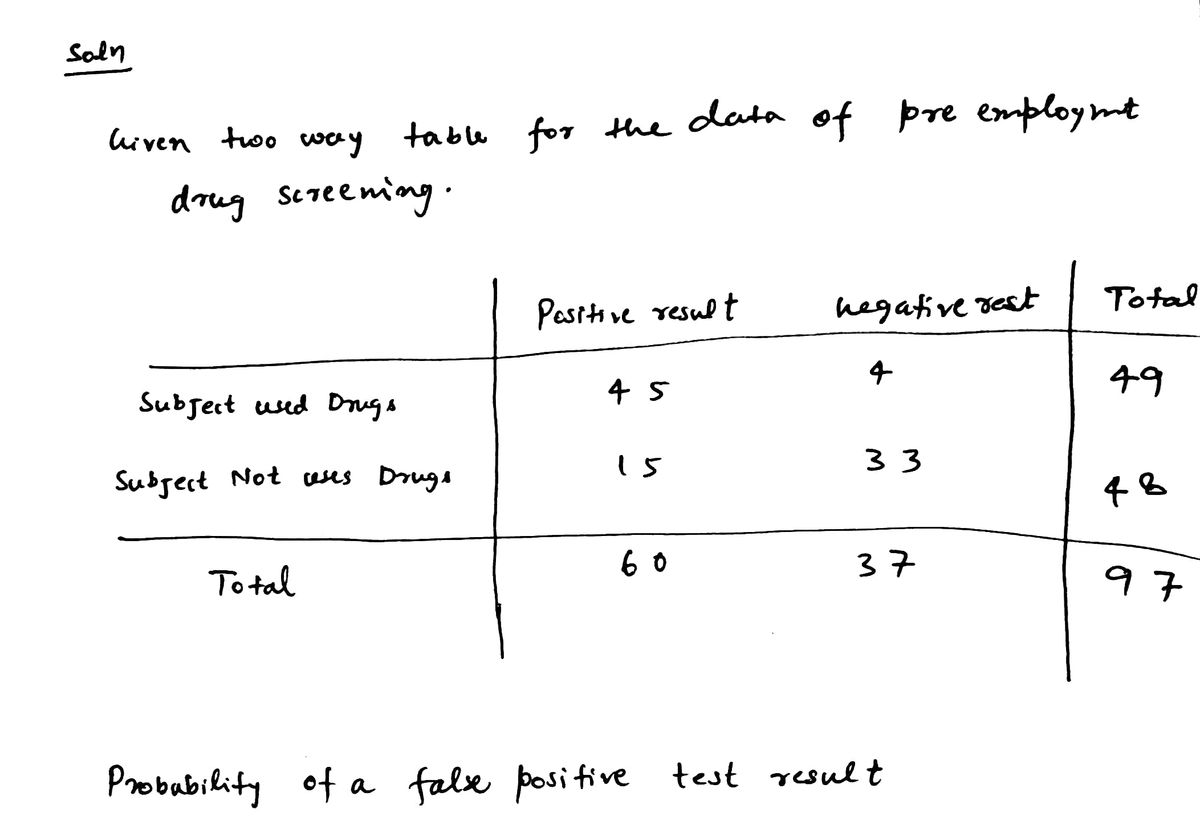 Soln
Given two way table for the data of pre employmt
drug screening.
Positive result negative rest Total
Subject used Drugs 45 4 49
Subject Not uses Drugs 15 33 48
Total 60 37 97
Probability of a false positive test result